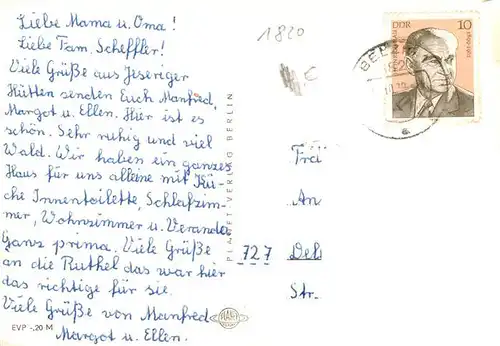 Liebe Mama u. Oma!
Liebe Fam. Scheffler!
Viele Grüße aus Jeseriger
Hütten senden Euch Manfred,
Margot u. Ellen. Hier ist es
schön. Sehr ruhig und viel
Wald. Wir haben ein ganzes
Haus für uns alleine mit Kü-
che Innentoilette, Schlafzim-
mer, Wohnzimmer u. Veranda
Ganz prima. Viele Grüße
an die Ruthel das war hier
das richtige für sie.
Viele Grüße von Manfred
Margot u. Ellen.
EVP -,20 M
PLANET-VERLAG BERLIN
PLANET
1820
€
DDR 10
727
Str.